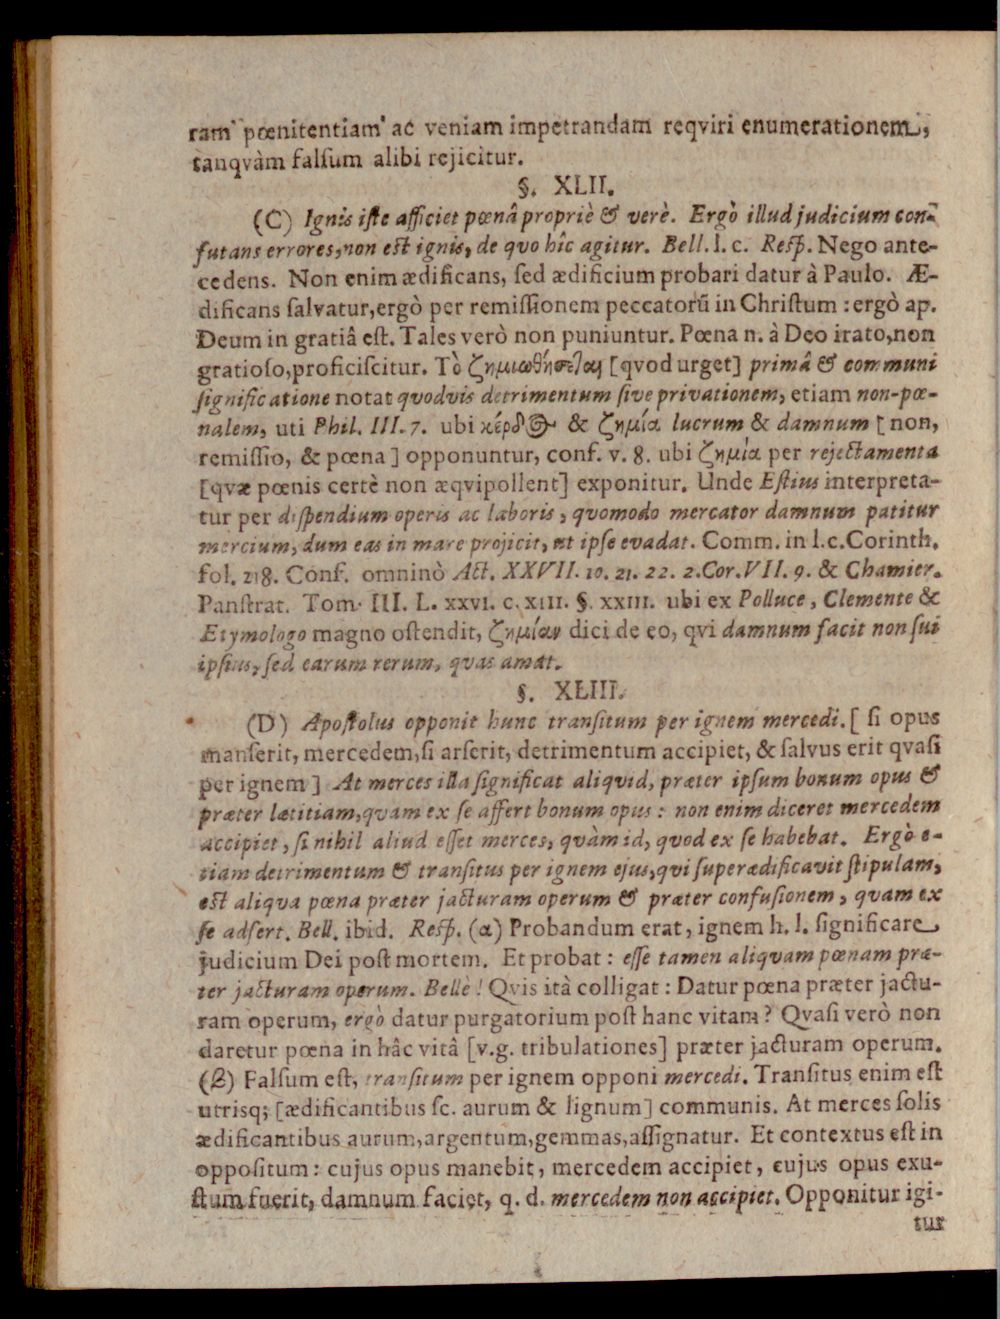 ram pœnitentiam ac veniam impetrandam reqviri enumerationem,
tanqvàm falſum alibi rejicitur.
§. XLII.
(C) Ignis iſte afficiet pœnâ propriè & verè. Ergò illud judicium con-
futans errores, non eſt ignis, de qvo hîc agitur. Bell. l. c. Reſp. Nego ante-
cedens. Non enim ædificans, ſed ædificium probari datur à Paulo. Æ-
dificans ſalvatur, ergò per remiſſionem peccatorũ in Chriſtum: ergò ap.
Deum in gratiâ eſt. Tales verò non puniuntur. Pœna n. à Deo irato, non
gratioſo, proficiſcitur. Τὸ ζημιωθήσεται [qvod urget] primâ & communi
ſignificatione notat qvodvis detrimentum ſive privationem, etiam non-pœ-
nalem, uti Phil. III. 7. ubi κέρδος & ζημία lucrum & damnum [non,
remiſſio, & pœna] opponuntur, conf. v. 8. ubi ζημία per rejectamenta
[qvæ pœnis certè non æqvipollent] exponitur. Unde Eſtius interpreta-
tur per diſpendium operis ac laboris, qvomodo mercator damnum patitur
mercium, dum eas in mare projicit, ut ipſe evadat. Comm. in l.c. Corinth.
fol. 218. Conf. omninò Act. XXVII. 10. 21. 22. 2. Cor. VII. 9. & Chamier.
Panſtrat. Tom. III. L. XXVI. c. XIII. §. XXIII. ubi ex Polluce, Clemente &
Etymologo magno oſtendit, ζημίαν dici de eo, qvi damnum facit non ſui
ipſius, ſed earum rerum, qvas amat.
§. XLIII.
(D) Apoſtolus opponit hunc tranſitum per ignem mercedi. [ſi opus
manſerit, mercedem, ſi arſerit, detrimentum accipiet, & ſalvus erit qvaſi
per ignem] At merces illa ſignificat aliqvid, præter ipſum bonum opus &
præter lætitiam, qvam ex ſe affert bonum opus: non enim diceret mercedem
accipiet, ſi nihil aliud eſſet merces, qvàm id, qvod ex ſe habebat. Ergò e-
tiam detrimentum & tranſitus per ignem ejus, qvi ſuperædificavit ſtipulam,
eſt aliqva pœna præter jacturam operum & præter confuſionem, qvam ex
ſe adfert. Bell. ibid. Reſp. (α) Probandum erat, ignem h. l. ſignificare
judicium Dei poſt mortem. Et probat: eſſe tamen aliqvam pœnam præ-
ter jacturam operum. Bellè! Qvis ità colligat: Datur pœna præter jactu-
ram operum, ergò datur purgatorium poſt hanc vitam? Qvaſi verò non
daretur pœna in hâc vitâ [v.g. tribulationes] præter jacturam operum.
(β) Falſum eſt, tranſitum per ignem opponi mercedi. Tranſitus enim eſt
utrisq; [ædificantibus ſc. aurum & lignum] communis. At merces ſolis
ædificantibus aurum, argentum, gemmas, aſſignatur. Et contextus eſt in
oppoſitum: cujus opus manebit, mercedem accipiet, cujus opus exu-
ſtum fuerit, damnum faciet, q. d. mercedem non accipiet. Opponitur igi-
tur